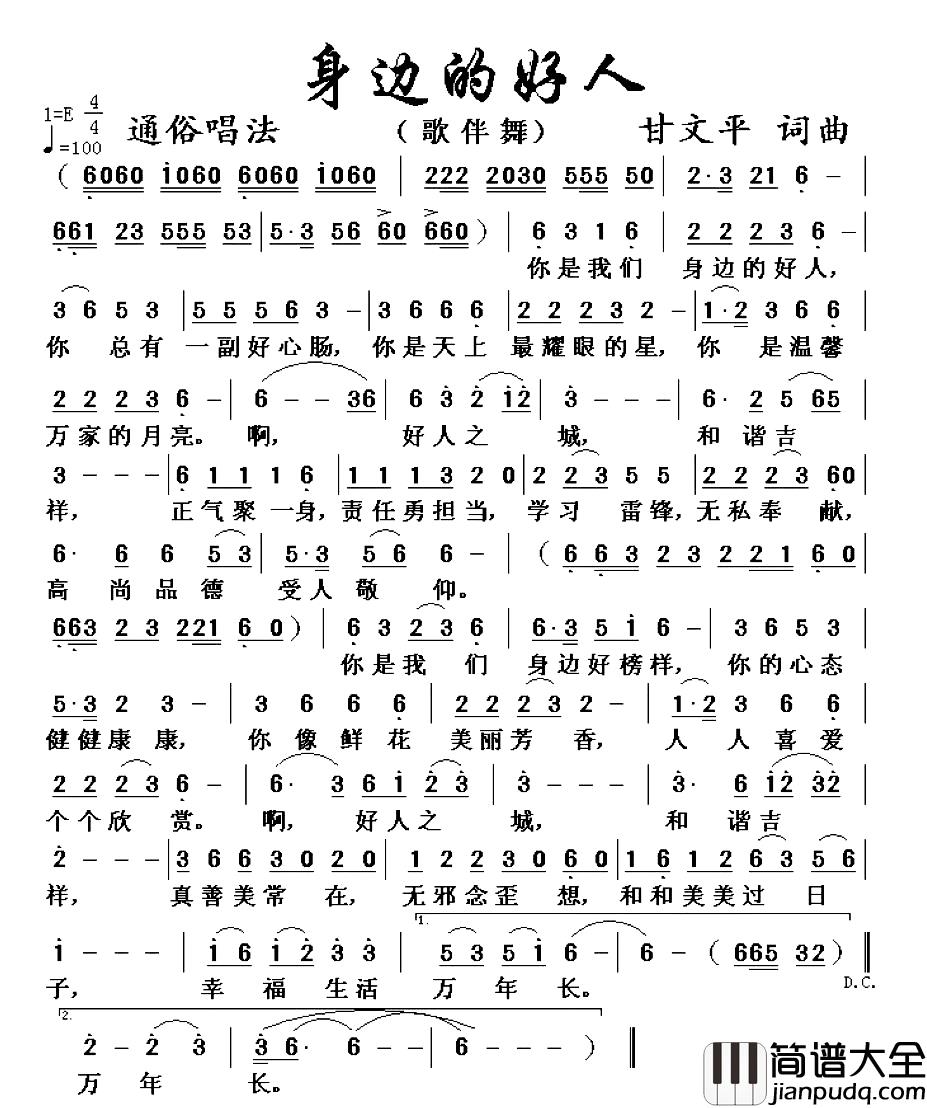 身边的好人
1=E 4/4
♩=100 通俗唱法 （歌伴舞） 甘文平 词曲
（ 6060 i060 6060 i060 | 222 2030 555 50 | 2·3 21 6 － |
661 23 555 53 | 5·3 56 60 660 ） | 6 3 1 6 | 2 2 2 3 6 － |
你是我们 身边的好人，
3 6 5 3 | 5 5 5 6 3 － | 3 6 6 6 | 2 2 2 3 2 － | 1·2 3 6 6 |
你 总有 一副好心肠， 你是天上 最耀眼的星， 你 是温馨
2 2 2 3 6 － | 6 － － 36 | 6 3 2 i2 | 3 － － － | 6· 2 5 65 |
万家的月亮。 啊， 好人之 城， 和 谐吉
3 － － － | 6 1 1 1 6 | 1 1 1 3 2 0 | 2 2 3 5 5 | 2 2 2 3 60 |
样， 正气聚一身， 责任勇担当， 学习 雷锋， 无私奉 献，
6· 6 6 5 3 | 5·3 5 6 6 － | （ 6 6 3 2 3 2 2 1 6 0 |
高 尚品德 受人敬 仰。
663 2 3 221 6 0 ） | 6 3 2 3 6 | 6·3 5 i 6 － | 3 6 5 3 |
你是我 们 身边好榜样， 你的心态
5·3 2 3 － | 3 6 6 6 | 2 2 2 3 2 － | 1·2 3 6 6 |
健健康康， 你像鲜花 美丽芳 香， 人 人喜爱
2 2 2 3 6 － | 6· 3 | 3 6 i 2 3 | 3 － － － | 3· 6 i2 32 |
个个欣 赏。 啊， 好人之 城， 和 谐吉
2 － － － | 3 6 6 3 0 2 0 | 1 2 2 3 0 6 0 | 1 6 1 2 6 3 5 6 |
样， 真善美常 在， 无邪念歪 想， 和和美美过 日
1.
i － － － | i 6 i 2 3 3 | 5 3 5 i 6 － | 6 － （ 665 32 ） ‖
子， 幸福生活 万年长。 D.C.
2.
2 － 2 3 | 3 6· 6 － | 6 － － ） ‖
万年 长。
简谱大全
jianpudq.com